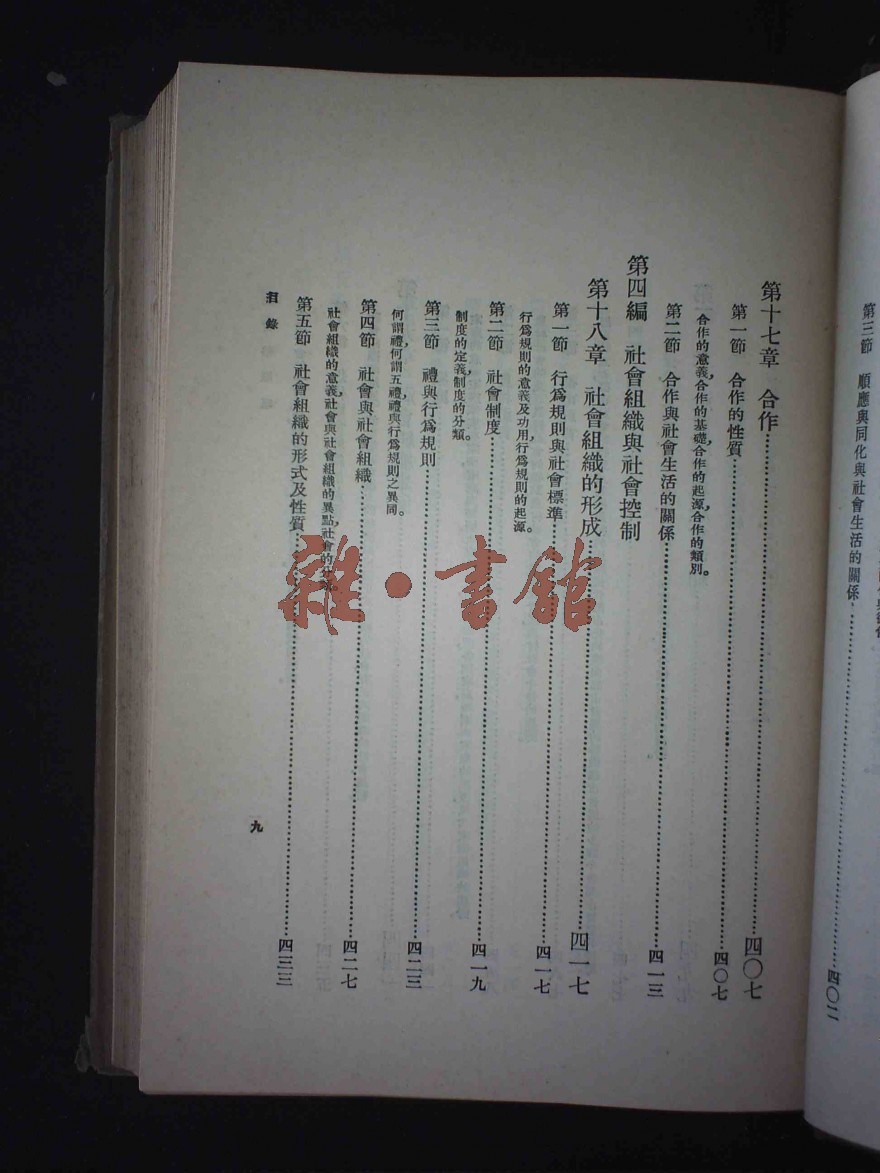 第三節　順應與同化與社會生活的關係……四〇二
第十七章　合作……四〇七
第一節　合作的性質……四〇七
合作的意義，合作的基礎，合作的起源，合作的類別。
第二節　合作與社會生活的關係……四一三
第四編　社會組織與社會控制
第十八章　社會組織的形成……四一七
第一節　行爲規則與社會標準……四一七
行爲規則的意義及功用，行爲規則的起源。
第二節　社會制度……四一九
制度的定義，制度的分類。
第三節　禮與行爲規則……四二三
何謂禮，何謂五禮，禮與行爲規則之異同。
第四節　社會與社會組織……四二七
社會組織的意義，社會與社會組織的異點，社會的分
第五節　社會組織的形式及性質……四三三
目錄
九
雜・書館